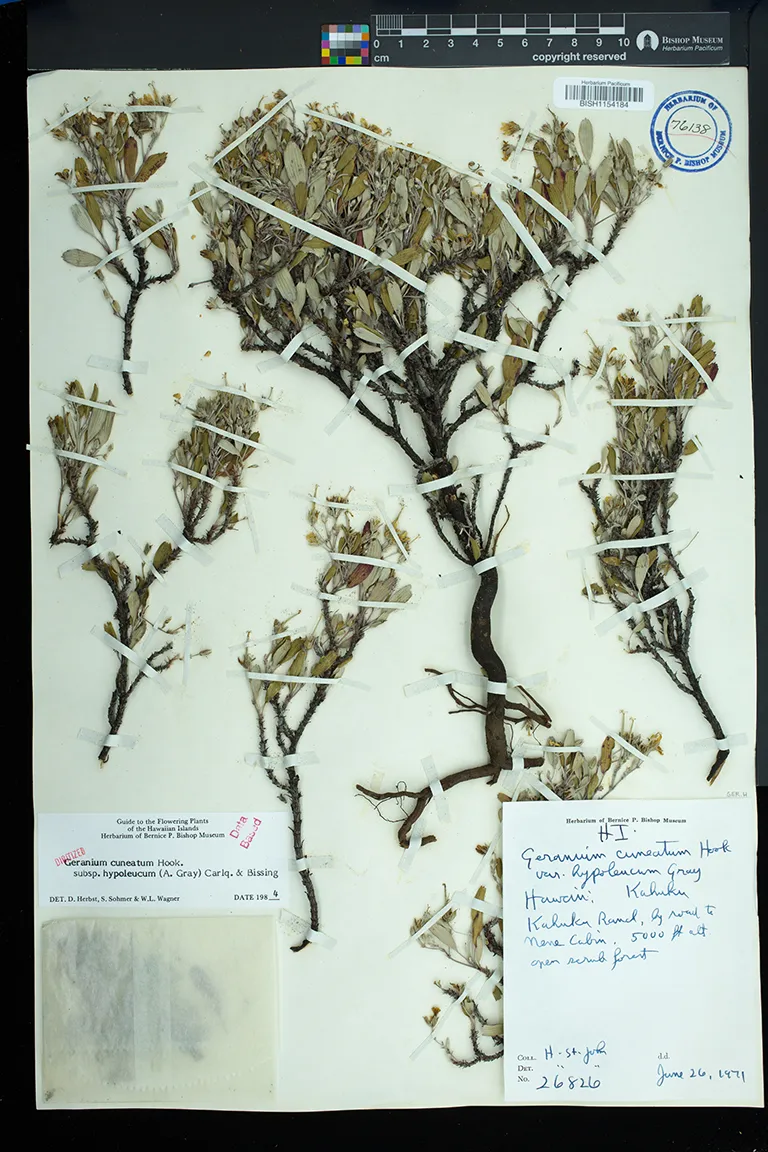 cm
0 1 2 3 4 5 6 7 8 9 10
copyright reserved
BISHOP MUSEUM
Herbarium Pacificum
Herbarium Pacificum
BISH1154184
HERBARIUM OF
76138
BERNICE P. BISHOP MUSEUM
Guide to the Flowering Plants
of the Hawaiian Islands
Herbarium of Bernice P. Bishop Museum
Data
Based
DIGITIZED
Geranium cuneatum Hook.
subsp. hypoleucum (A. Gray) Carlq. & Bissing
DET. D. Herbst, S. Sohmer & W.L. Wagner
DATE 1984
GER. H
Herbarium of Bernice P. Bishop Museum
H I.
Geranium cuneatum Hook
var. hypoleucum Gray
Hawaii: Kahuku
Kahuku Ranch, by road to
Nene Cabin. 5000 ft alt
open scrub forest
COLL. H. St. John
d.d.
DET. " "
No. 26826
June 26, 1971